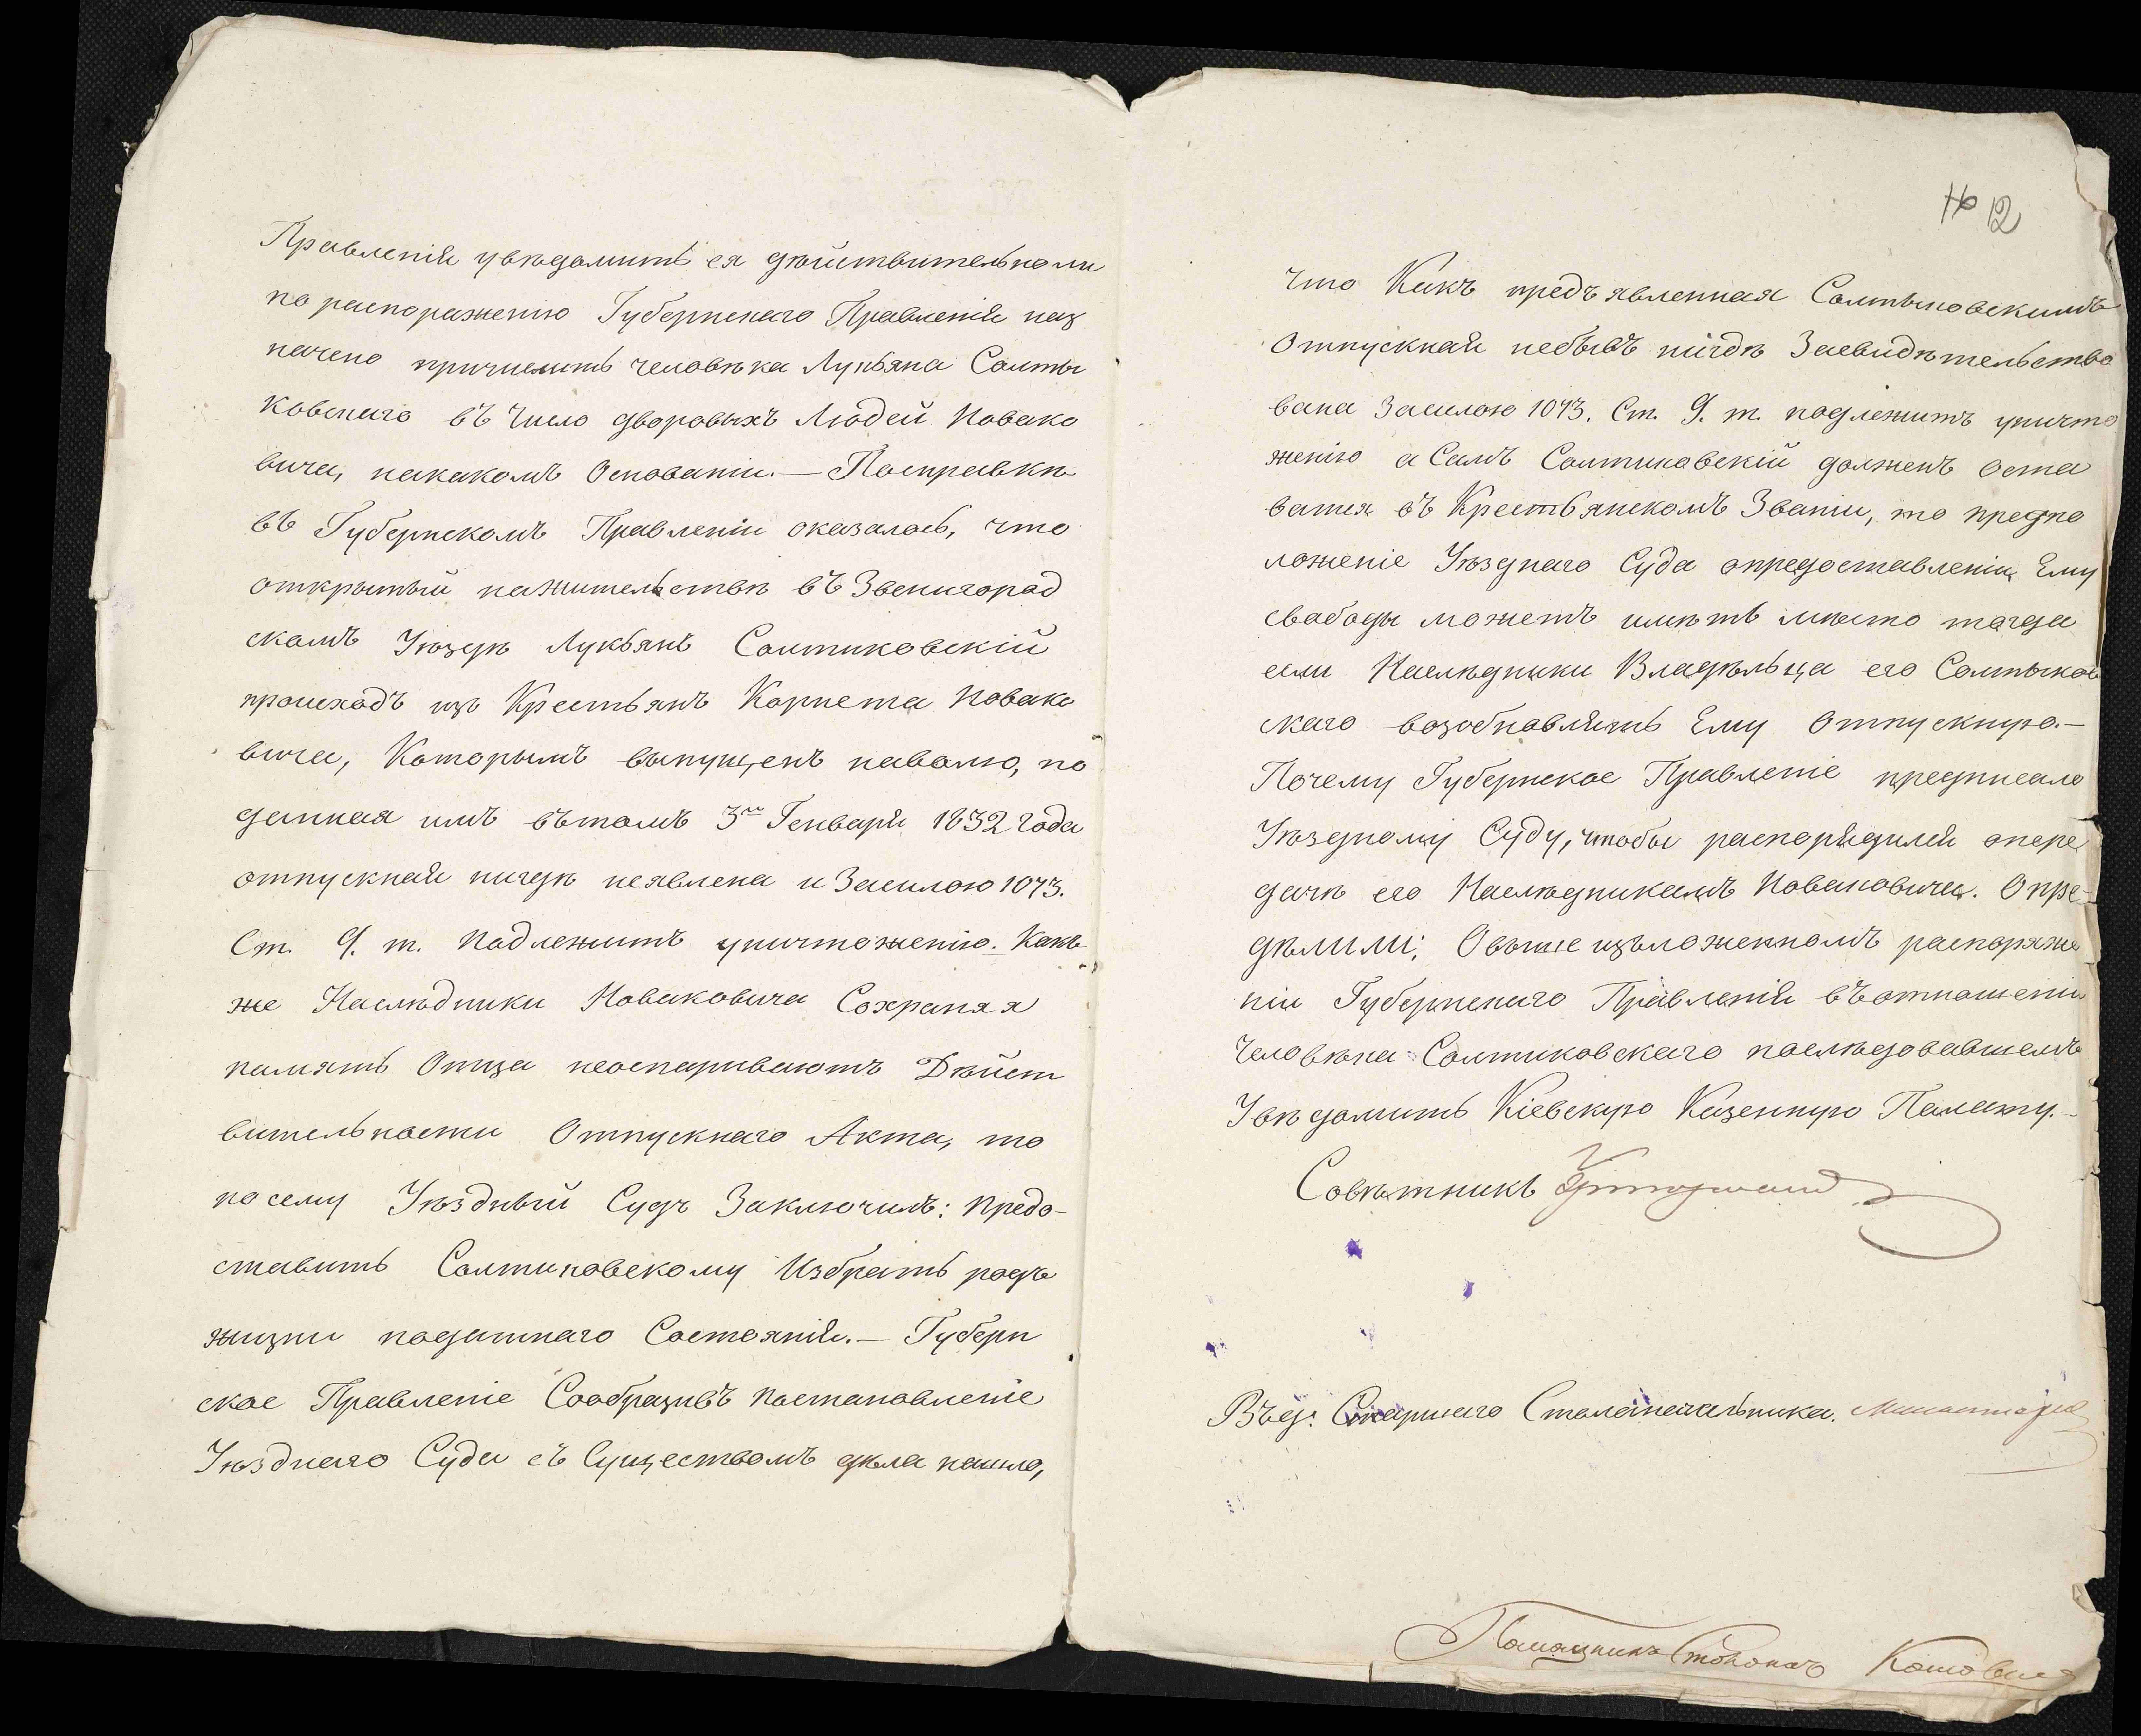 Правленія увѣдомить ея дѣйствительноли
по распоряженію Губернскаго Правленія наз
начено причислить человѣка Лукьяна Солты
ковскаго въ Число дворовыхъ Людей Новако
вича, накакомъ Основаніи. — Посправкѣ
въ Губернскомъ Правленіи оказалось, что
открытый нажительствѣ въ Звенигород
скомъ Уѣздѣ Лукьянъ Солтиковскій
происходъ изъ Крестьянъ Корнета Новако
вича, Которымъ выпущенъ наволю, но
данная имъ вътомъ 3го Генваря 1832 года
отпускная нигдѣ неявлена и Засилою 1073.
Ст. 9. т. Подлежитъ уничтоженію. Какъ
же Наслѣдники Новаковича Сохраняя
память Отца неоспариваютъ Дѣйст
вительности Отпускнаго Акта, то
посему Уѣздный Судъ Заключилъ: Предо-
ставить Солтиковскому Избрать родъ
жизни податнаго Состоянія. — Губерн
ское Правленіе Сообразивъ Постановленіе
Уѣзднаго Суда съ Существомъ дѣла нашло,
12
что Какъ предъявленная Солтыковскимъ
Отпускная небывъ нигдѣ Засвидѣтельство
вана Засилою 1073. Ст. 9. т. подлежитъ уничто
женію а Самъ Солтиковскій долженъ оста
ватся въ Крестьянскомъ Званіи, то предпо
ложеніе Уѣзднаго Суда опредоставленіи Ему
свабоды можетъ имѣть мѣсто тогда
если Наслѣдники Владѣльца его Солтыков
скаго возобновлятъ Ему Отпускную. —
Почему Губернское Правленіе предписало
Уѣздному Суду, чтобы распорядился опере
дачѣ его Наслѣдникамъ Новаковича. Опре-
дѣлили: Овыше изъложенномъ распоряже
ніи Губернскаго Правленія въотношеніи
Человѣка Солтиковскаго послѣдовавшемъ
Увѣдомить Кіевскую Казенную Палату. —
Совѣтникъ
Въд: Старшаго Столоначальника.
Помощникъ Столонач